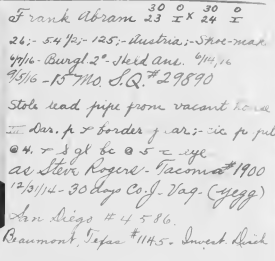 30 0 30 0
Frank Abram 23 I x 24 I
26;- 5 4 1/2;- 125;- Austria;- Shoe-mak
6/7/16- Burgl. 2°- Skid Ans. 6/14/16
9/5/16- 15 Mo. S.Q. # 29890
Stole lead pipe from vacant house
III. Dar. p & border f. ar;- cic p pel
@ 4. & s gl be @ 5 c eye
as Steve Rogers- Tacoma # 1900
12/31/14- 30 days Co. J- Vag- (yegg)
San Diego # 4586.
Beaumont, Texas # 1145. Invest. Disch